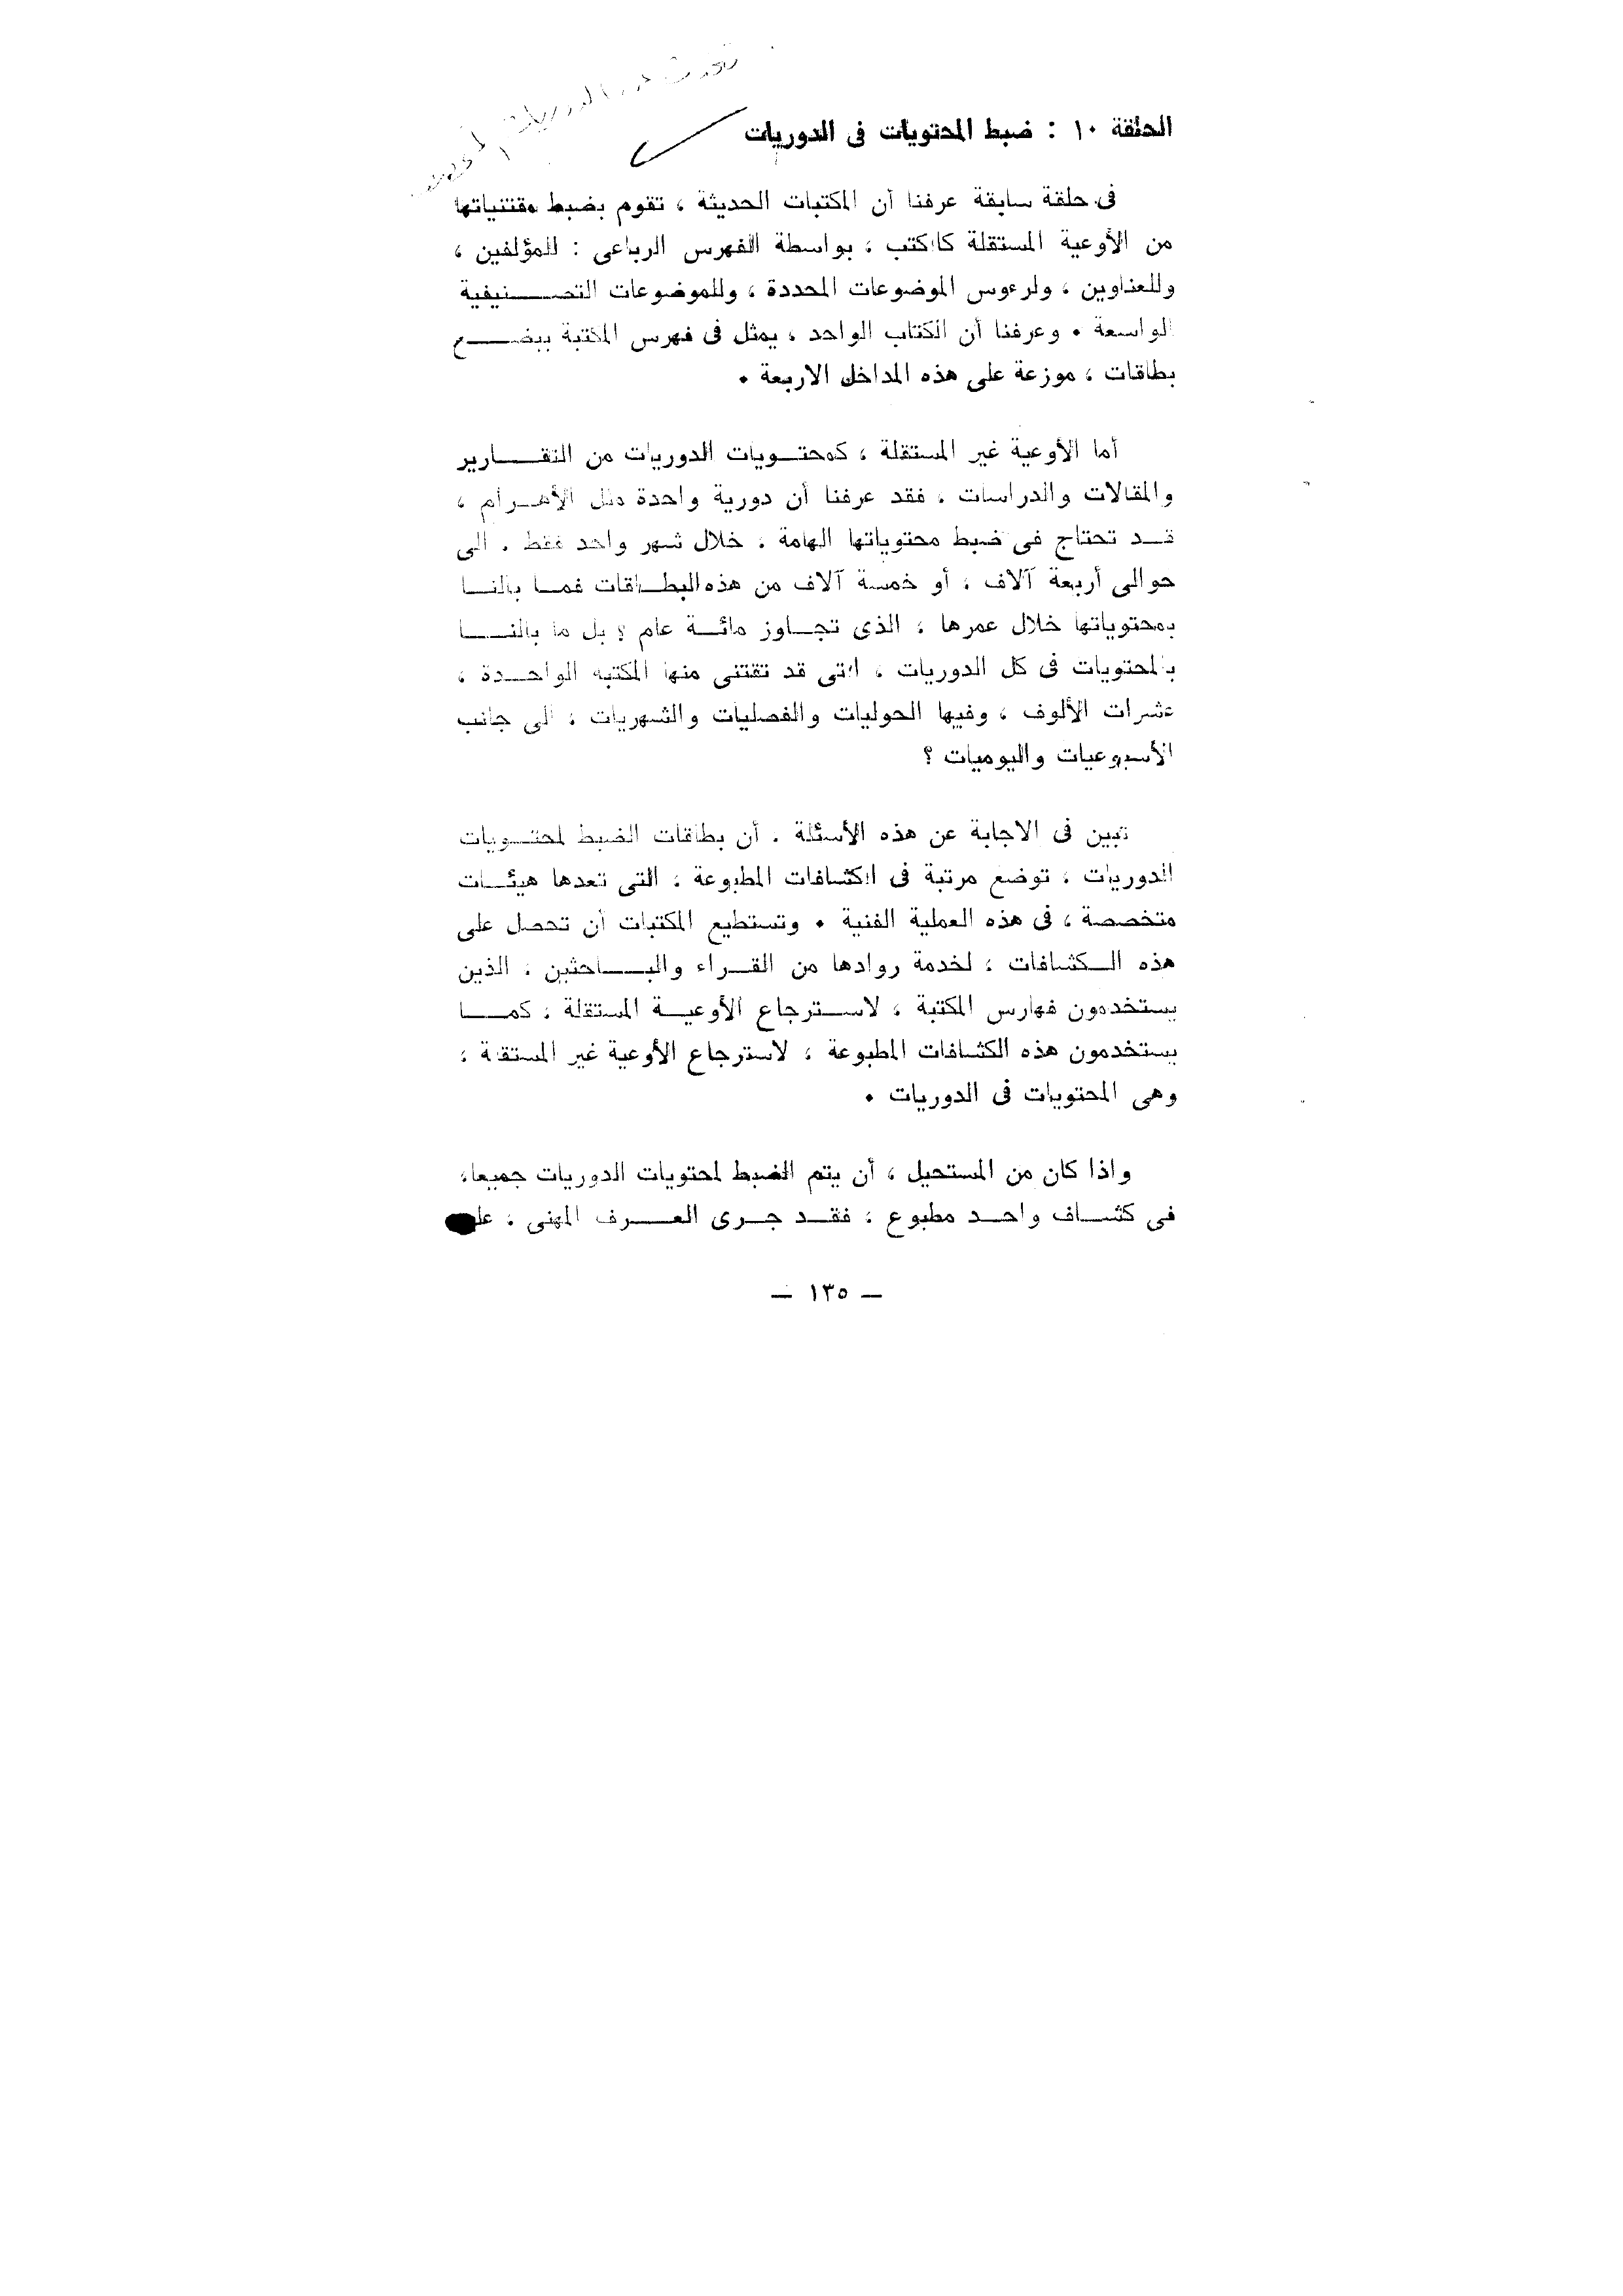 الحلقة ١٠ : ضبط المحتويات فى الدوريات
فى حلقة سابقة عرفنا أن المكتبات الحديثة ، تقوم بضبط مقتنياتها
من الأوعية المستقلة كالكتب ، بواسطة الفهرس الرباعى : للمؤلفين ،
وللعناوين ، ولرءوس الموضوعات المحددة ، وللموضوعات التصـــنيفية
الواسعة . وعرفنا أن الكتاب الواحد ، يمثل فى فهرس المكتبة ببضـــع
بطاقات ، موزعة على هذه المداخل الاربعة .
أما الأوعية غير المستقلة ، كمحتـويات الدوريات من التقـــارير
والمقالات والدراسات ، فقد عرفنا أن دورية واحدة مثل الأهـرام ،
قـد تحتاج فى ضبط محتوياتها الهامة ، خلال شهر واحد فقط ، الى
حوالى أربعة آلاف ، أو خمسة آلاف من هذه البطـاقات فمـا بالنـا
بمحتوياتها خلال عمرها ، الذى تجـاوز مائـة عام ؟ بل ما بالنـــا
بالمحتويات فى كل الدوريات ، التى قد تقتنى منها المكتبة الواحـدة ،
عشرات الألوف ، وفيها الحوليات والفصليات والشهريات ، الى جانب
الأسبوعيات واليوميات ؟
تبين فى الاجابة عن هذه الأسئلة ، أن بطاقات الضبط لمحتـويات
الدوريات ، توضع مرتبة فى الكشافات المطبوعة ، التى تعدها هيئـات
متخصصة ، فى هذه العملية الفنية . وتستطيع المكتبات أن تحصل على
هذه الـكشافات ، لخدمة روادها من القـراء والبـــاحثين ، الذين
يستخدمون فهارس المكتبة ، لاسـترجاع الأوعيـة المستقلة ، كمـــا
يستخدمون هذه الكشافات المطبوعة ، لاسترجاع الأوعية غير المستقلة ،
وهى المحتويات فى الدوريات .
واذا كان من المستحيل ، أن يتم الضبط لمحتويات الدوريات جميعا،
فى كشـاف واحـد مطبوع ، فقـد جـرى العـــرف المهنى ، على
— ١٣٥ —